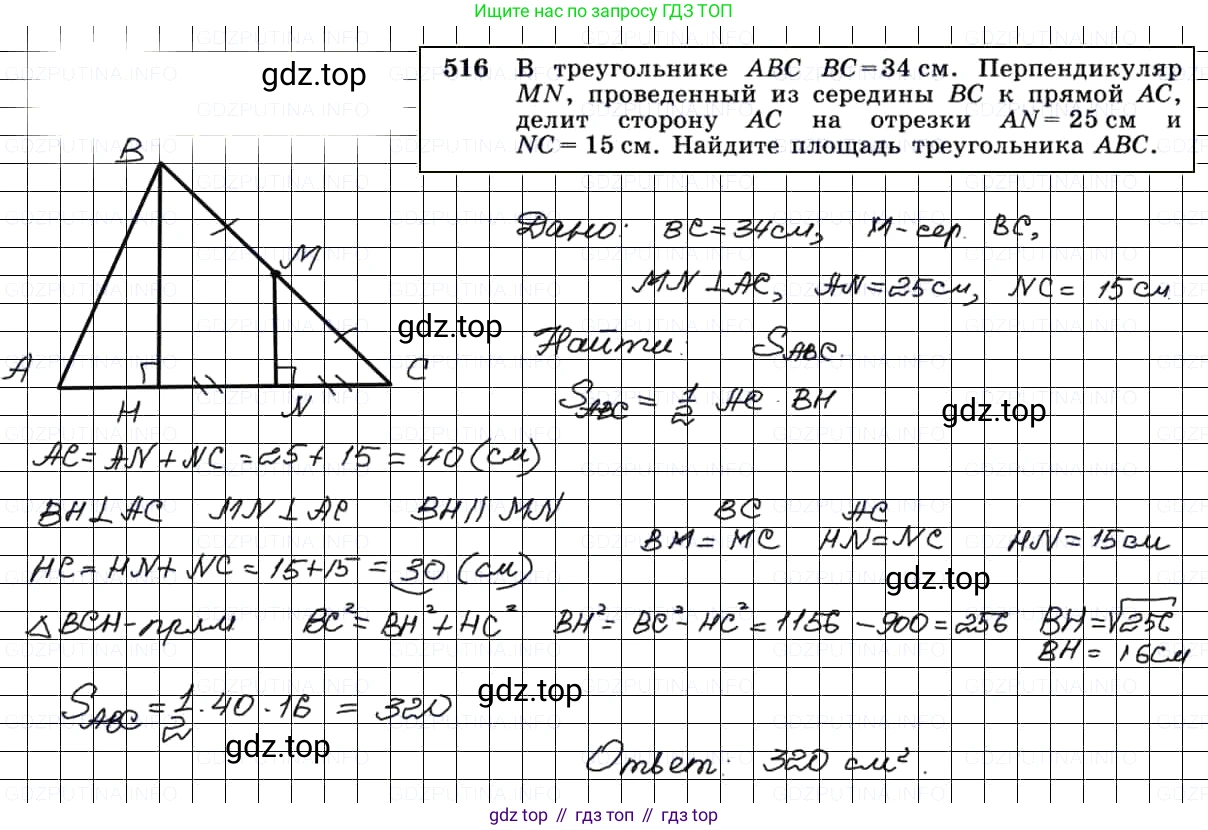 Ищите нас по запросу ГДЗ ТОП
516 В треугольнике ABC BC = 34 см. Перпендикуляр
MN, проведенный из середины BC к прямой AC,
делит сторону AC на отрезки AN = 25 см и
NC = 15 см. Найдите площадь треугольника ABC.
gdz.top
B
M
A
C
H
N
Дано: BC = 34 см, M - сер. BC,
MN ⊥ AC, AN = 25 см, NC = 15 см
gdz.top
Найти: S_ABC.
S_ABC = 1/2 AC · BH
gdz.top
AC = AN + NC = 25 + 15 = 40 (см)
BH ⊥ AC MN ⊥ AC BH // MN BC AC
BM = MC HN = NC HN = 15 см
HC = HN + NC = 15 + 15 = 30 (см)
gdz.top
△ BCH - прям BC² = BH² + HC² BH² = BC² - HC² = 1156 - 900 = 256 BH = √256
BH = 16 см
S_ABC = 1/2 · 40 · 16 = 320
gdz.top
gdz.top
Ответ: 320 см².
gdz top // гдз топ // gdz top
GDZPUTINA.INFO